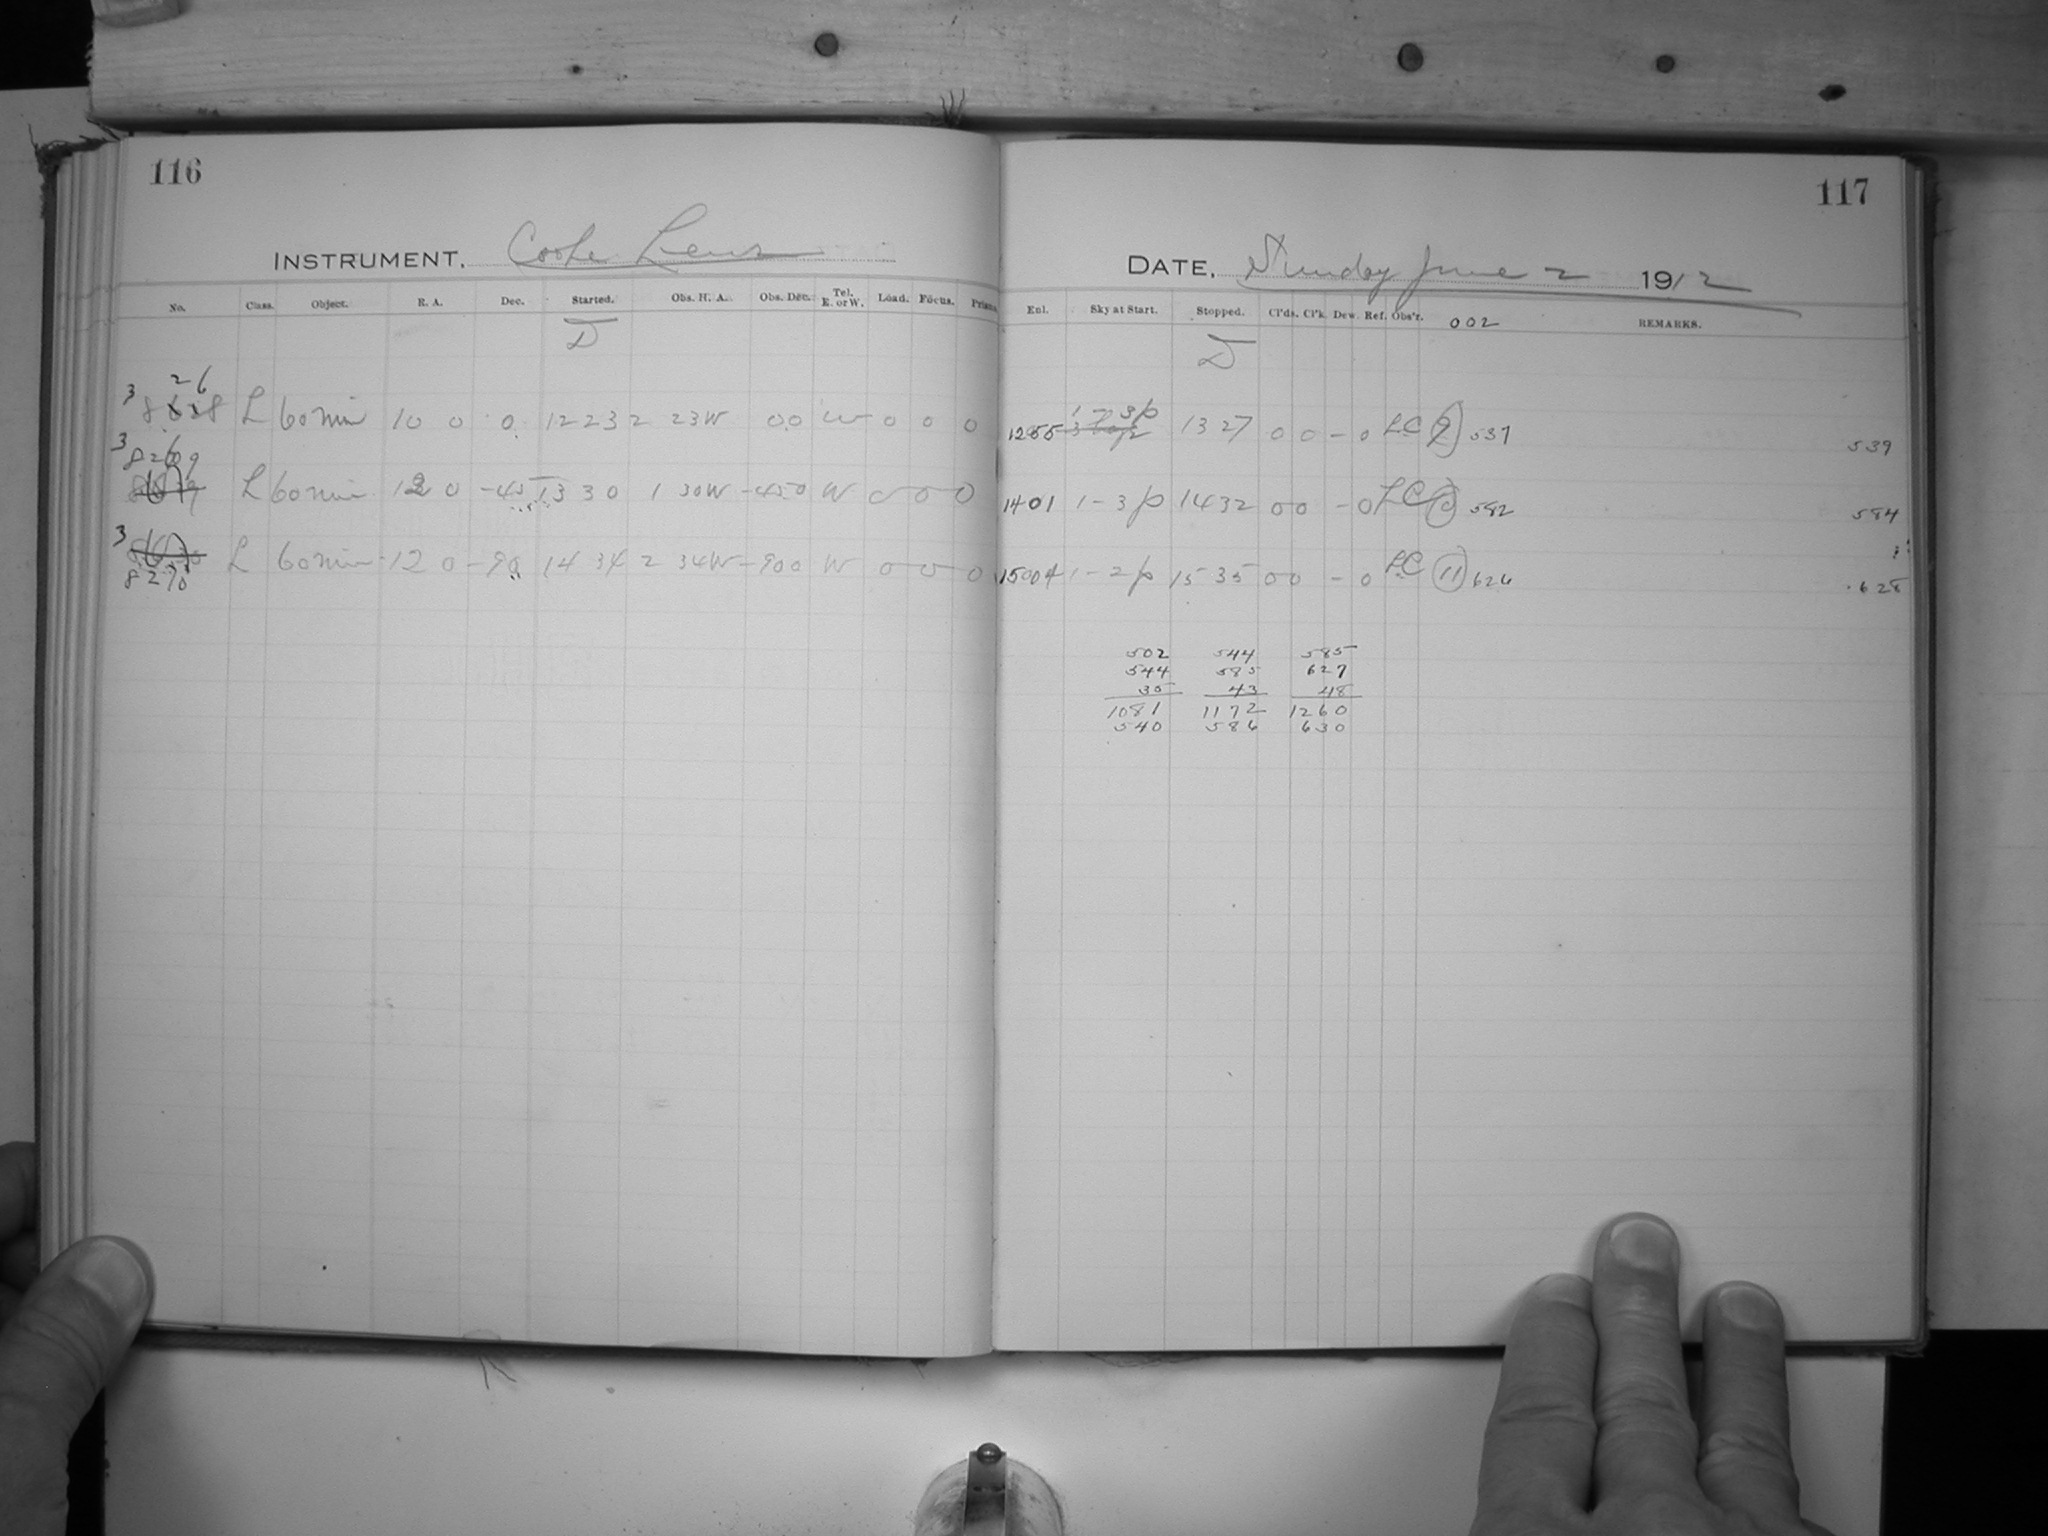 116
INSTRUMENT. Cooke Lens
No. Class. Object. R. A. Dec. Started. Obs. H. A. Obs. Dec. Tel. E. or W. Load. Focus. Prism
26
3
8 8 L 60 min 10 0 0 12 23 2 23W 00 W 0 0 0
3
8269
L 60 min 12 0 -45 13 30 1 30W -450 W 0 0 0
3
L 60 min 12 0 -90 14 34 2 34W -900 W 0 0 0
8270
117
DATE, Sunday June 2 1912
Enl. Sky at Start. Stopped. Cl'ds. Cl'k. Dew. Ref. Obs'r. 002 REMARKS.
1 - 3 p
1255 13 27 0 0 - 0 LC 9 537 539
1401 1 - 3 p 14 32 0 0 - 0 LC 10 582 584
1504 1 - 2 p 15 35 0 0 - 0 LC 11 626 628
502 544 585
544 585 627
35 43 48
1081 1172 1260
540 586 630